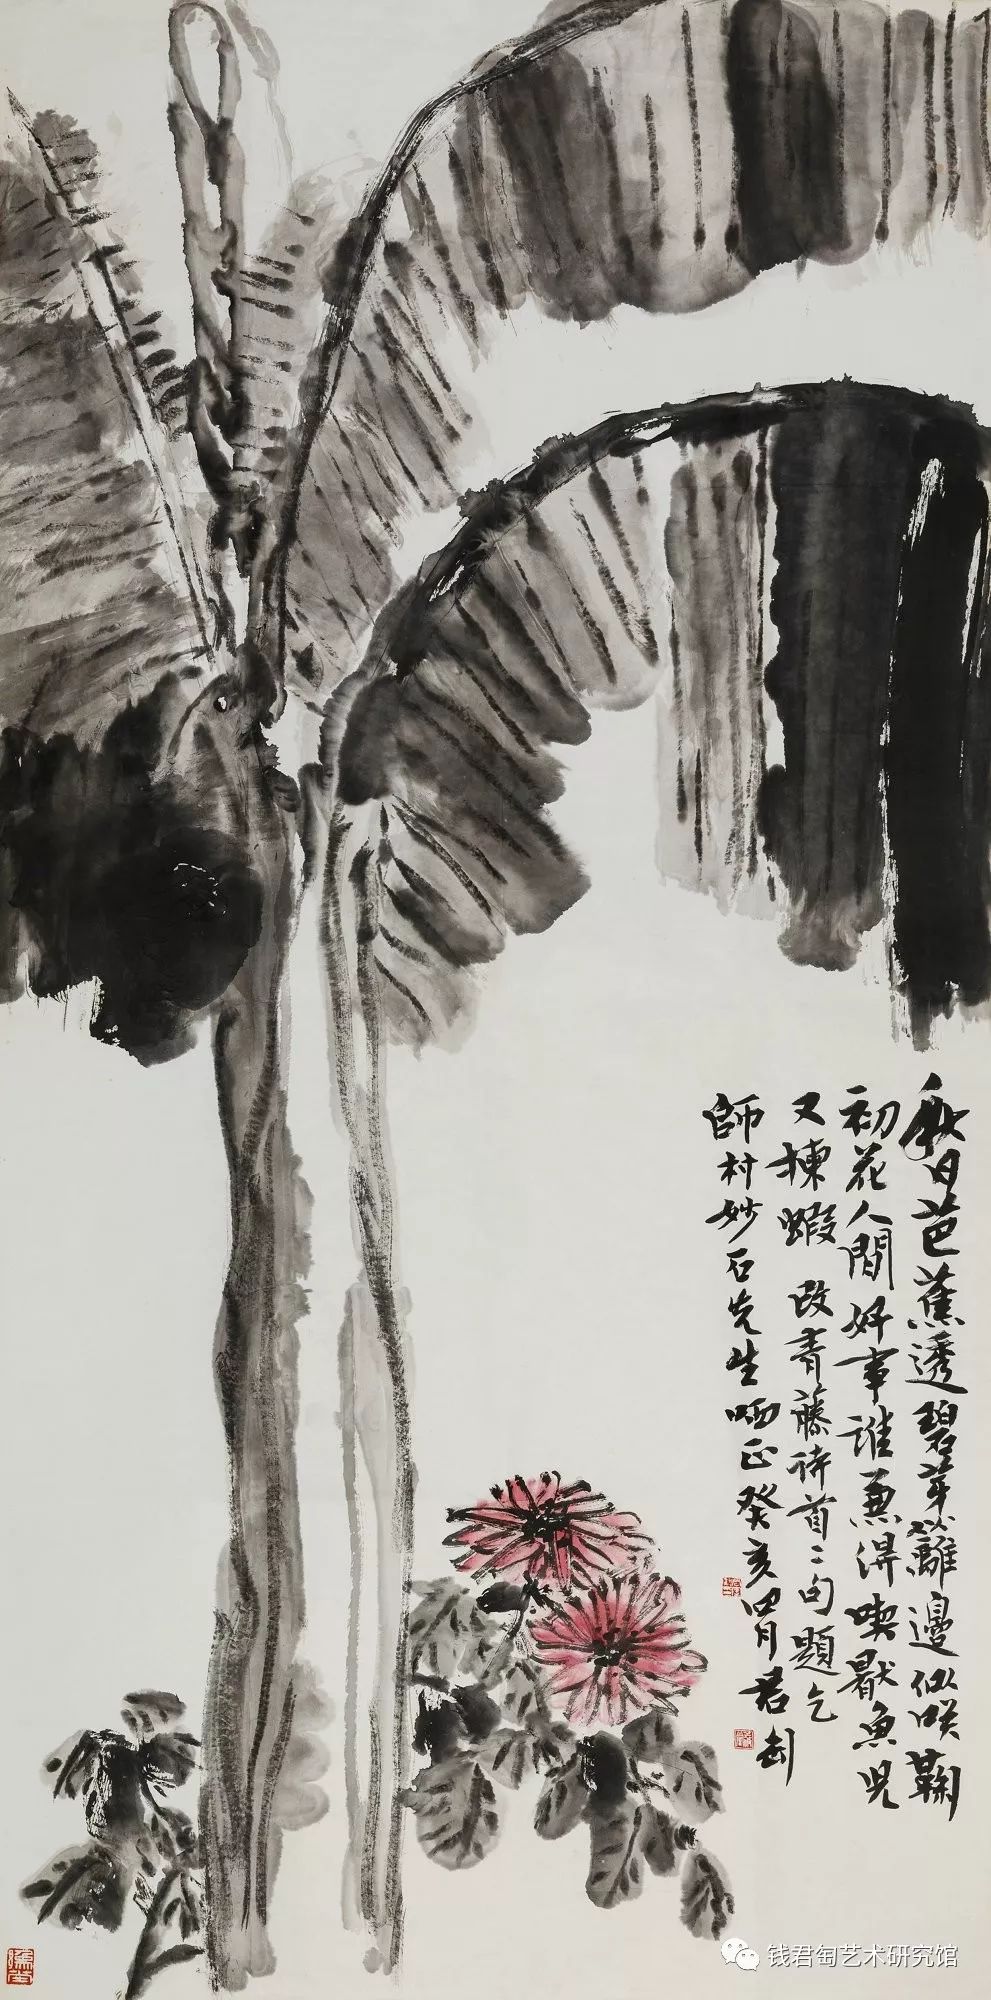 秋日芭蕉透碧芽籬邊似咲鞠
初花人間好事誰兼得喫厭魚児
又揀蝦 改青藤詩首二句題乞
師村妙石先生哂正癸亥四月君匋
钱君匋艺术研究馆